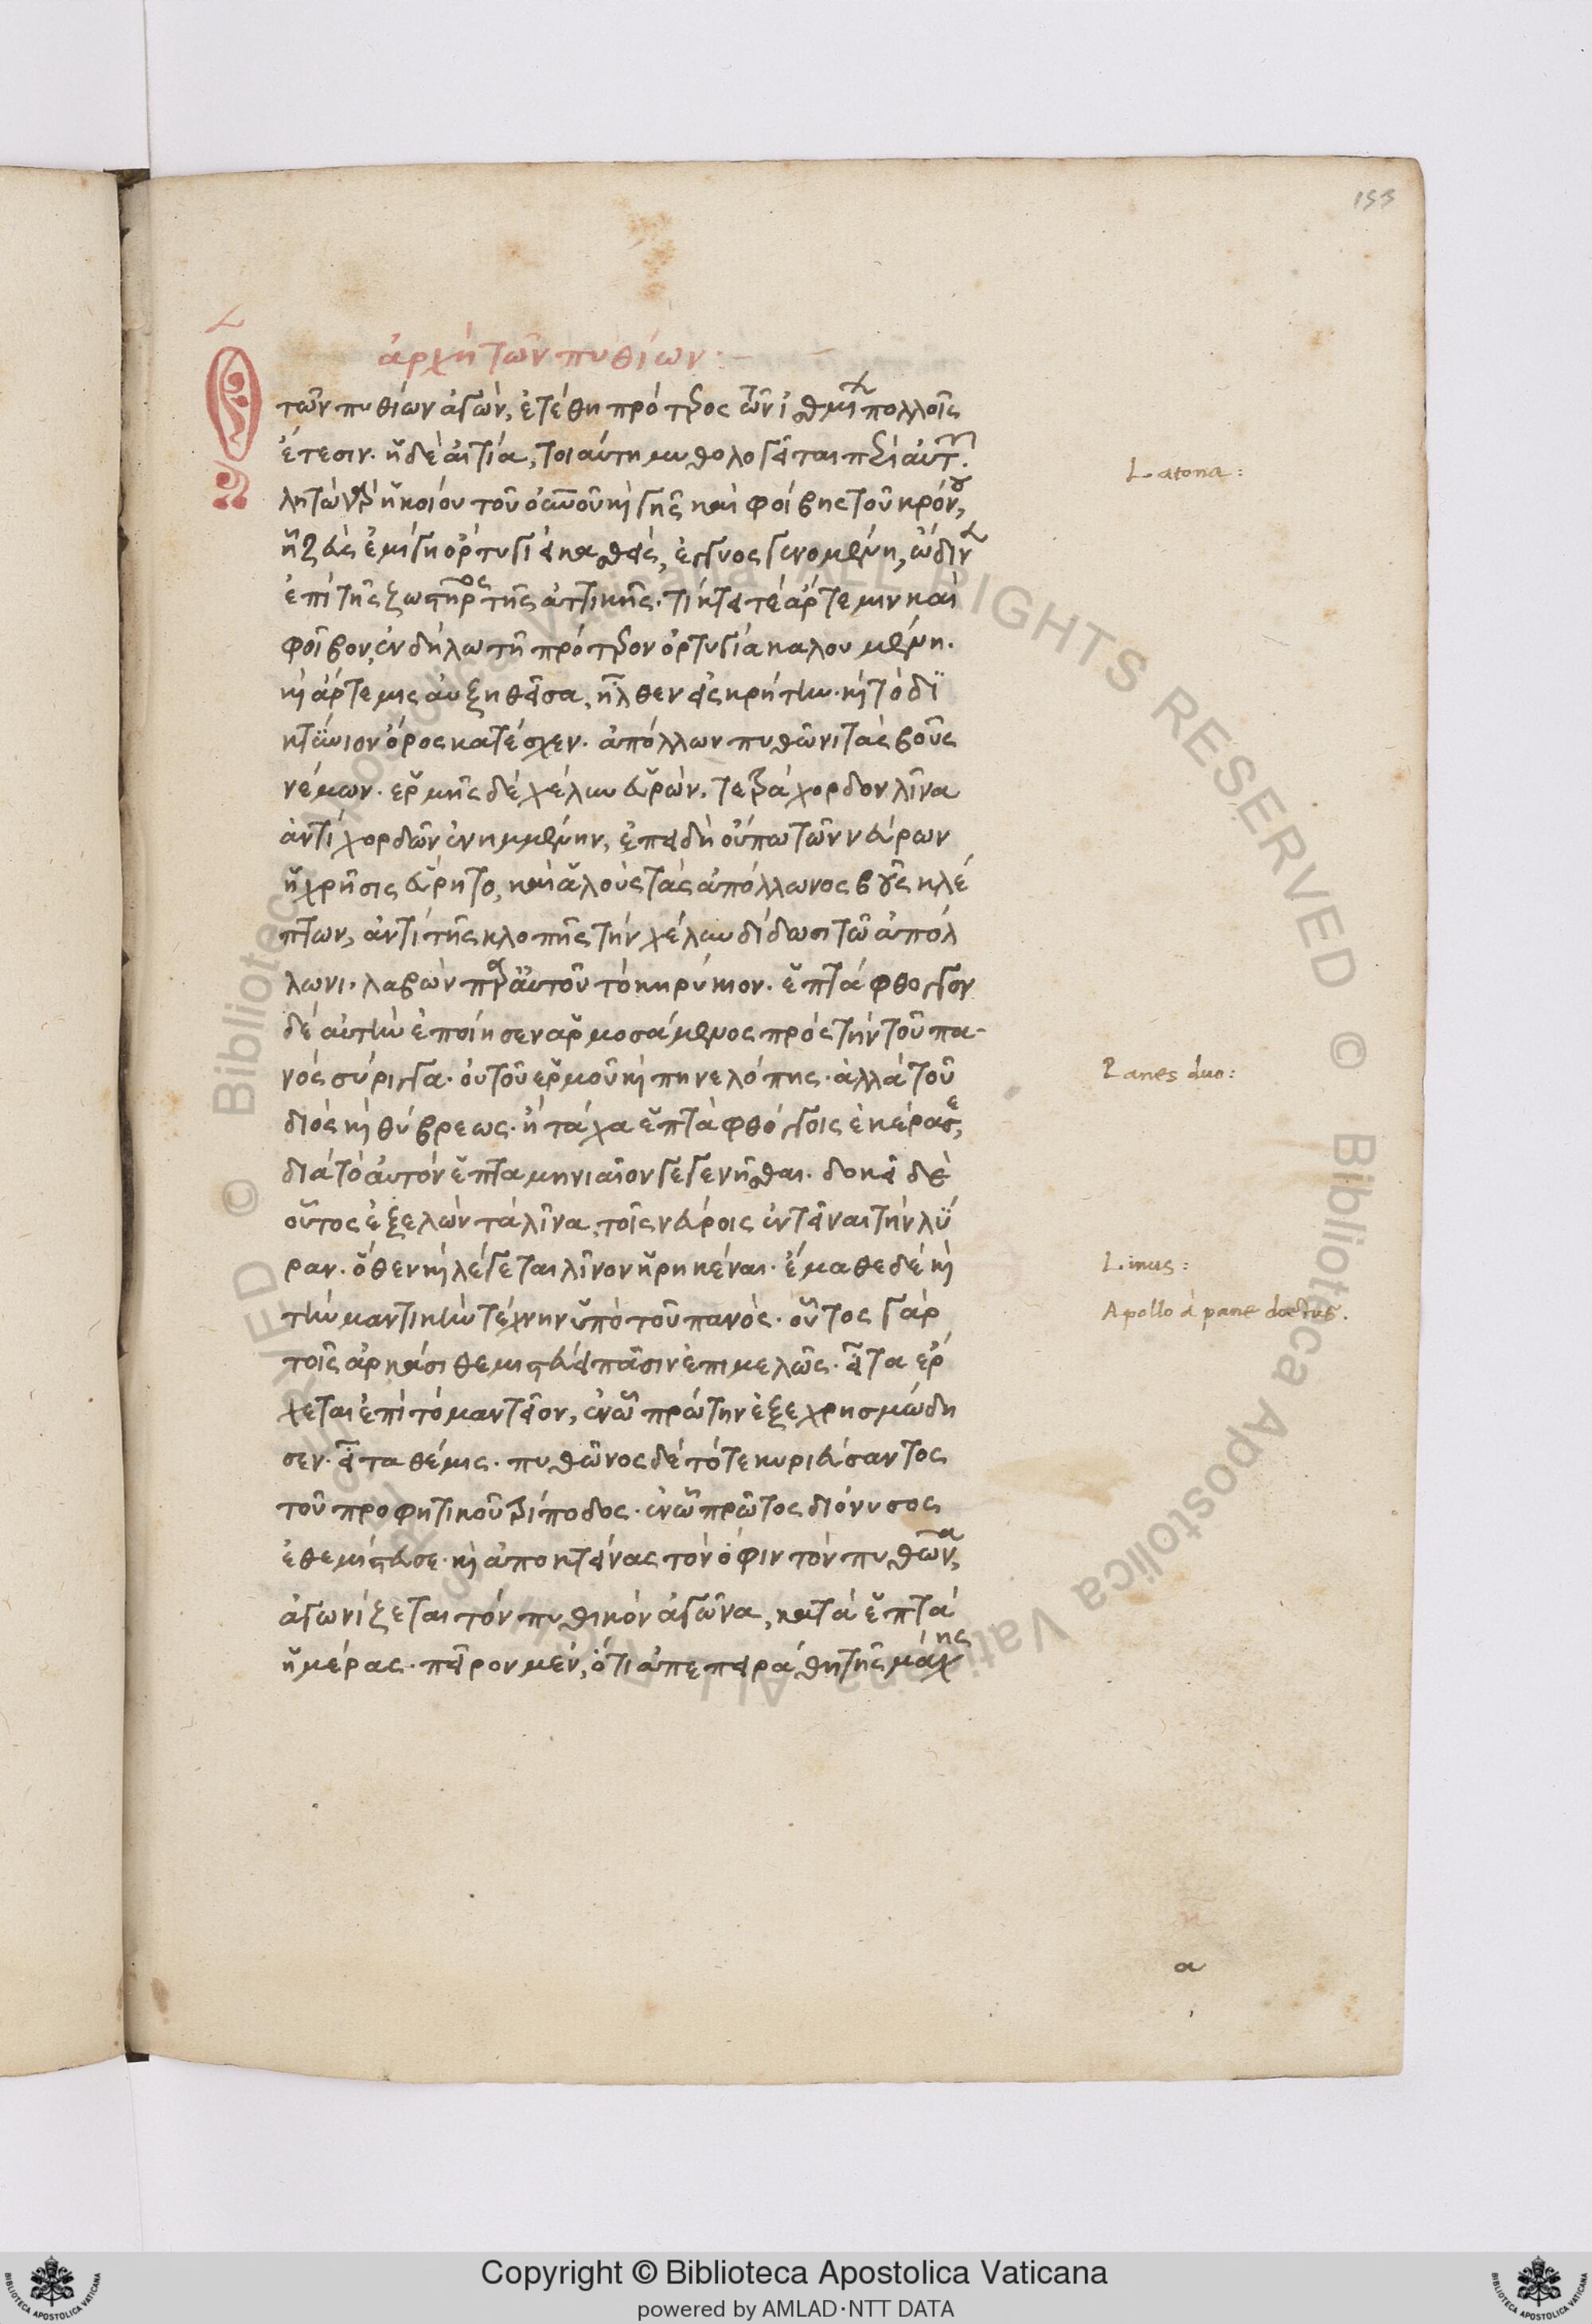 153
ἀρχὴ τῶν πυθίων:
Ὁ
τῶν πυθίων ἀγὼν, ἐτέθη πρότερος τῶν ἰσθμίων πολλοῖς
ἔτεσιν. ἡ δὲ αἰτία, τοιαύτη μυθολογεῖται περὶ αὐτῶν.
Latona:
λητὼ ἡ κοίου τοῦ οὐνοῦ κὶ γῆς καὶ φοίβης τοῦ κρόνου,
ἡ ζεὺς ἐμίγη ὀρτυγι εἰκασθεὶς, ἔγγυος γενομένη, ὠδίνει
ἐπὶ τῆς ζωστῆρος τῆς ἀττικῆς. τίκτει τὲ ἄρτεμιν καὶ
φοῖβον, ἐν δήλω τῆ πρότερον ὀρτυγία καλουμένη.
κὶ ἄρτεμις αὐξηθεῖσα, ἦλθεν εἰς κρήτην. κὶ τὸ δι
κταῖον ὄρος κατέσχεν. ἀπόλλων πυθῶνι τὰς βοῦς
νέμων. ἑρμῆς δὲ χέλυν εὑρὼν, τετράχορδον λῖνα
ἀντὶ χορδῶν ἐνημμένην, ἐπειδὴ οὔπω τῶν νεύρων
ἡ χρῆσις εὕρητο, καὶ ἁλοὺς τὰς ἀπόλλωνος βοῦς κλέ
πτων, ἀντὶ τῆς κλοπῆς τὴν χέλυν δίδωσι τῶ ἀπόλ
λωνι. λαβὼν παρ' αὐτοῦ τὸ κηρύκιον. ἑπτάφθογγον
δὲ αὐτὴν ἐποίησεν ἁρμοσάμενος πρὸς τὴν τοῦ πα-
νὸς σύριγγα. οὐ τοῦ ἑρμοῦ κὶ πηνελόπης. ἀλλὰ τοῦ
Panes duo:
διὸς κὶ θύβρεως. ἢ τάχα ἑπτὰ φθόγγοις ἐκέρασε,
διὰ τὸ αὐτὸν ἑπταμηνιαῖον γεγενῆσθαι. δοκεῖ δὲ
οὗτος ἐξελὼν τὰ λῖνα, τοῖς νεύροις ἐντεῖναι τὴν λύ
ραν. ὅθεν κὶ λέγεται λῖνον ἡρηκέναι. ἔμαθε δὲ κὶ
Linus:
τὴν μαντικὴν τέχνην ὑπὸ τοῦ πανὸς. οὗτος γὰρ
Apollo à pane doctus.
τοῖς ἀρκάσι θεμιστεύει πᾶσιν ἐπιμελῶς. εἶτα ἔρ
χεται ἐπὶ τὸ μαντεῖον, ἐν ὧ πρώτη νὺξ ἐχρησμώδη
σεν. εἶτα θέμις. πυθῶνος δὲ τότε κυριεύσαντος
τοῦ προφητικοῦ τρίποδος. ἐν ὧ πρῶτος διόνυσος
ἐθεμίστευσε. κὶ ἀποκτείνας τὸν ὄφιν τὸν πυθῶνα,
ἀγωνίζεται τὸν πυθικὸν ἀγῶνα, κατὰ ἑπτὰ
ἡμέρας. πεῖρον μὲν, ὅτι ἀπεπειράθη τῆς μάχης
α